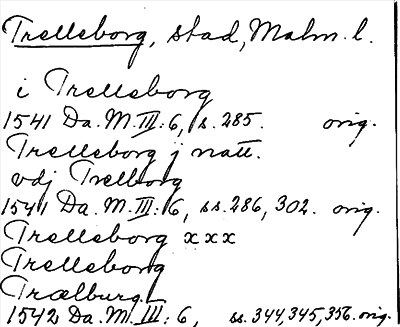 Trelleborg, stad, Malm. l.
i Trelleborg
1541 Da. M. III: 6, s. 285. orig.
Trelleborg j natt.
vdj Trelborg
1541 Da. M. III: 6, ss. 286, 302. orig.
Trelleborg x x x
Trelleborg
Trælburg
1542 Da. M. III: 6, ss. 344, 345, 356. orig.